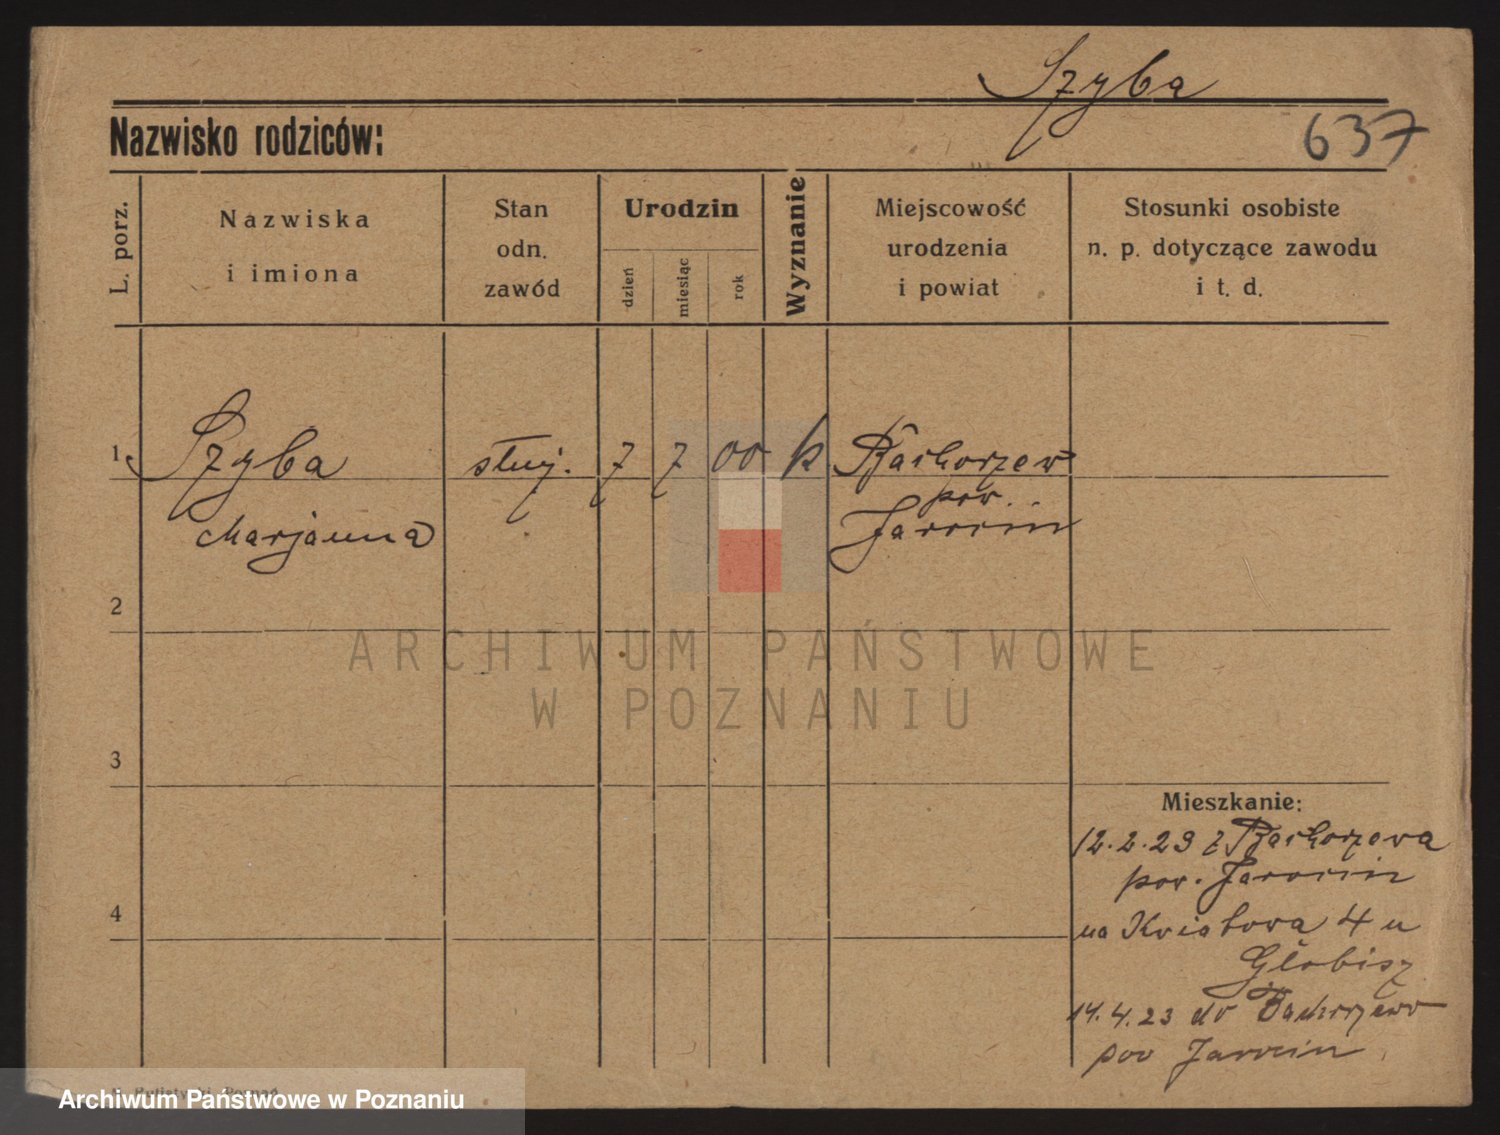 Szyba
Nazwisko rodziców:
637
L. porz.
Nazwiska
i imiona
Stan
odn.
zawód
Urodzin
dzień
miesiąc
rok
Wyznanie
Miejscowość
urodzenia
i powiat
Stosunki osobiste
n. p. dotyczące zawodu
i t. d.
1 Szyba służ. 7 7 00 k Bachorzew
pow.
Marjanna Jarocin
2
ARCHIWUM PAŃSTWOWE
W POZNANIU
3
Mieszkanie:
12.2.23 z Bachorzewa
pow. Jarocin
4
na Kwiatowa 4 u
Globisz
14.4.23 do Bachorzewo
pow Jarocin
Poznań
Archiwum Państwowe w Poznaniu